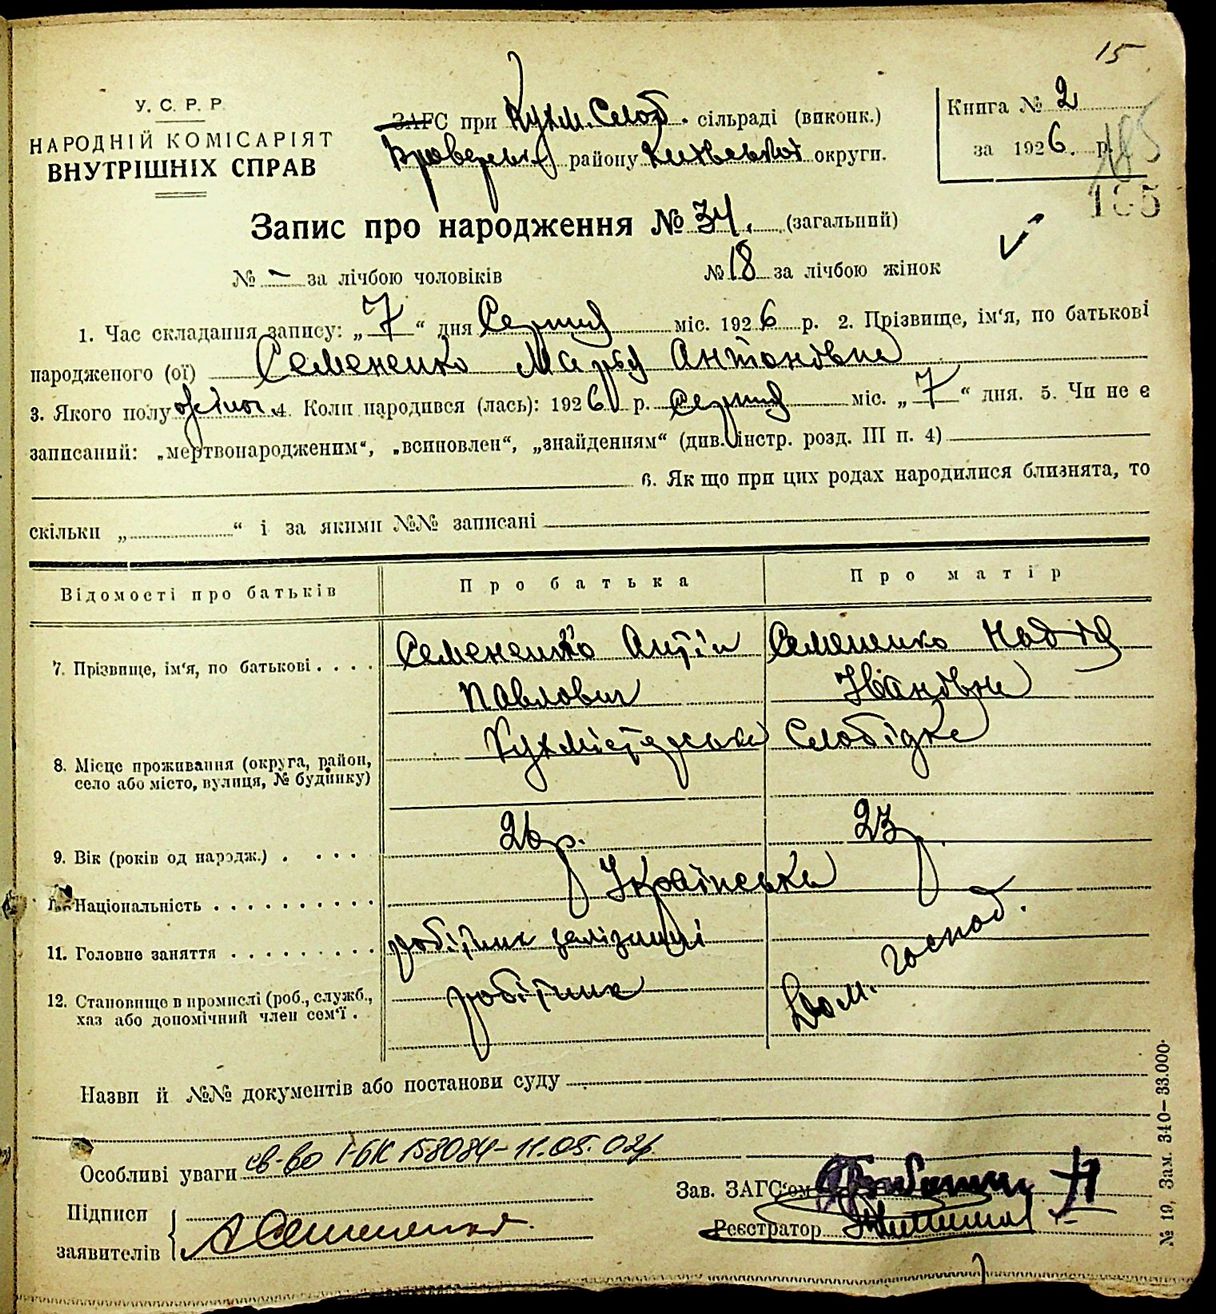 15
У. С. Р. Р.
НАРОДНІЙ КОМІСАРІЯТ
ВНУТРІШНІХ СПРАВ
ЗАГС при Кухм. Слоб. сільраді (виконк.)
Броварськ району Київської округи.
Книга № 2
за 1926. р.
185
Запис про народження № 34. (загальний)
№ – за лічбою чоловіків № 18 за лічбою жінок
1. Час складання запису: „ 7 “ дня Серпня міс. 1926 р. 2. Прізвище, ім'я, по батькові
народженого (ої) Семененко Марія Антоновна
3. Якого полу жіноч. 4. Коли народився (лась): 1926 р. Серпня міс. „ 7 “ дня. 5. Чи не є
записаний: „мертвонародженим“, „всиновлен“, „знайденням“ (див. інстр. розд. III п. 4)
6. Як що при цих родах народилися близнята, то
скільки „ “ і за якими №№ записані
Відомості про батьків Про батька Про матір
7. Прізвище, ім'я, по батькові . . . . Семененко Антін Семененко Надія
Павлович Івановна
Кухмістерська Слобідка
8. Місце проживання (округа, район,
село або місто, вулиця, № будинку)
9. Вік (років од народж.) . . . . 26 р. 23 р.
10. Національність . . . . . . . . . . Українська
11. Головне заняття . . . . . . . . . робітник залізниці
Дом. господ.
12. Становище в промислі (роб., служб., робітник
хаз або допомічний член сем'ї .
Назви й №№ документів або постанови суду
Особливі уваги св-во І-БК 158084 – 11.05.02р.
Зав. ЗАГС'ом
Підписи
заявителів А Семененко
Реєстратор
№ 19, Зам. 340—33.000.